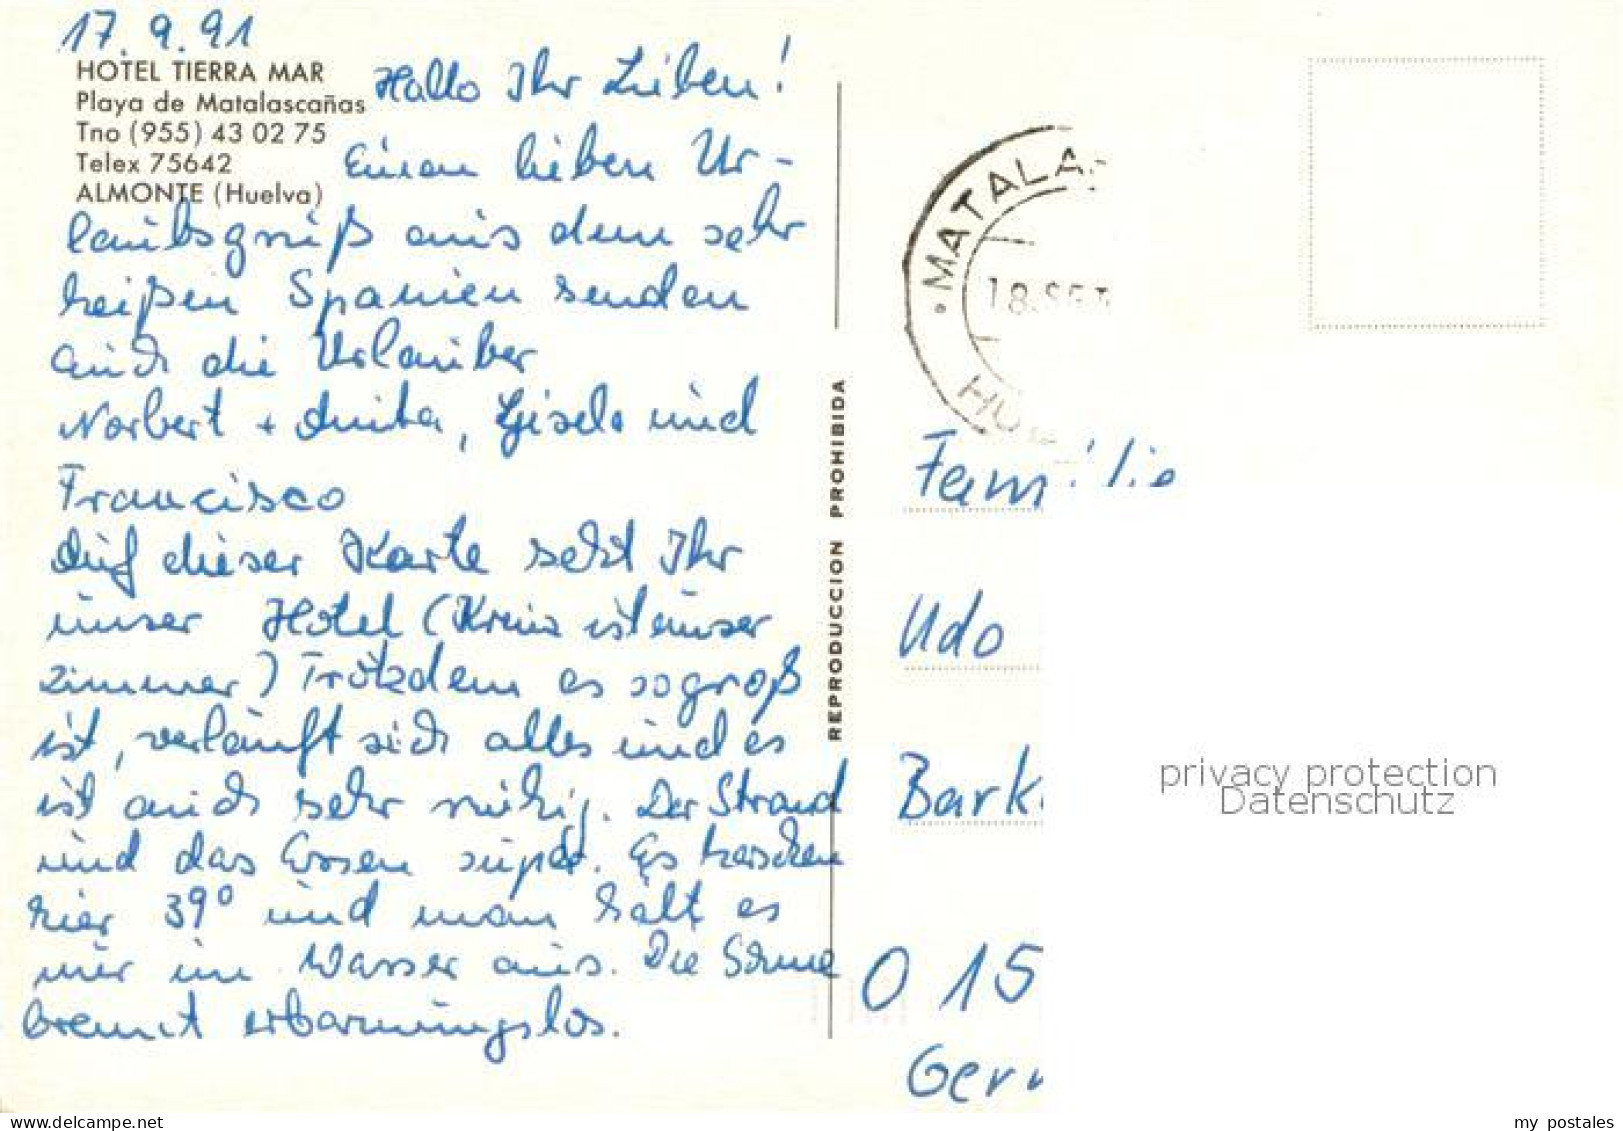 17.9.91
HOTEL TIERRA MAR
Playa de Matalascañas
Tno (955) 43 02 75
Telex 75642
ALMONTE (Huelva)
Hallo Ihr Lieben!
Einen lieben Ur-
laubsgruß aus dem sehr
heißen Spanien senden
auch die Urlauber
Norbert + Anita, Gisela und
Francisco
Auf dieser Karte seht Ihr
unser Hotel (Kreuz ist unser
Zimmer) Trotzdem es so groß
ist, verläuft sich alles und es
ist auch sehr ruhig. Der Strand
und das Essen super. Es herrschen
hier 39° und man hält es
nur im Wasser aus. Die Sonne
brennt erbarmungslos.
REPRODUCCION PROHIBIDA
MATALA
18 SET
HU
Familie
Udo
Bark
O 15
Ger
privacy protection
Datenschutz
delcampe.net
my_postales